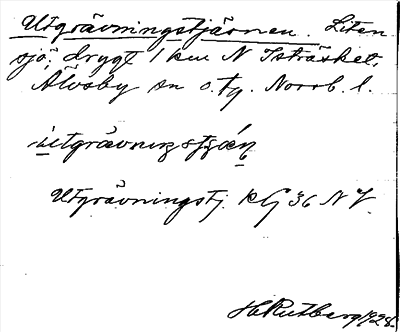 Utgrävningstjärnen. Liten
sjö, drygt 1 km N Isträsket.
Älvsby sn o. tg. Norrb. l.
ùtgrävnıŋstjǽɳ
Utgrävningstj. kG 36 NV.
H. Rutberg 1928.